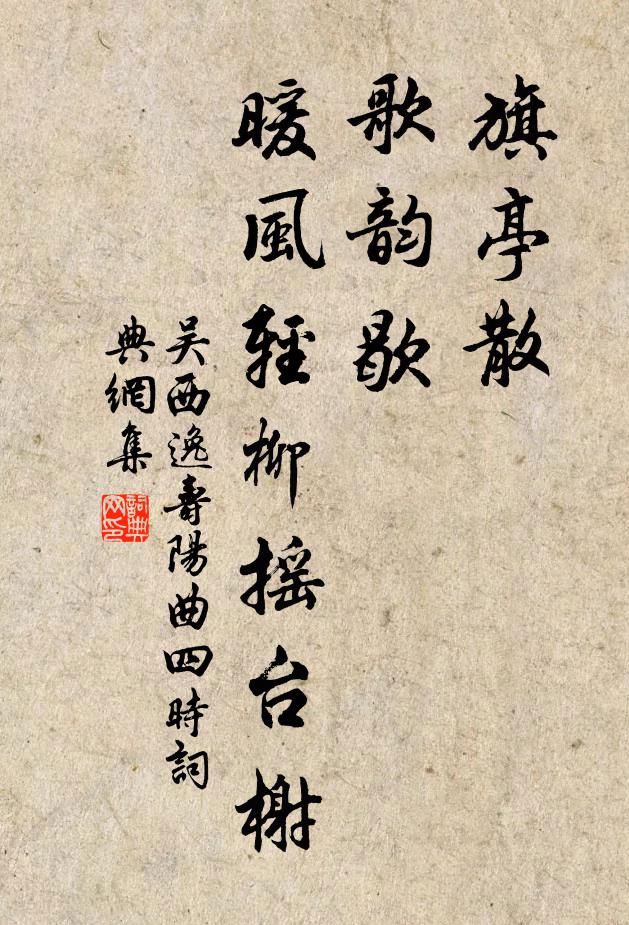 旗亭散
歌韵歇
暖風輕柳摇台榭
吴西逸壽陽曲四時詞
典網集
詞典網印